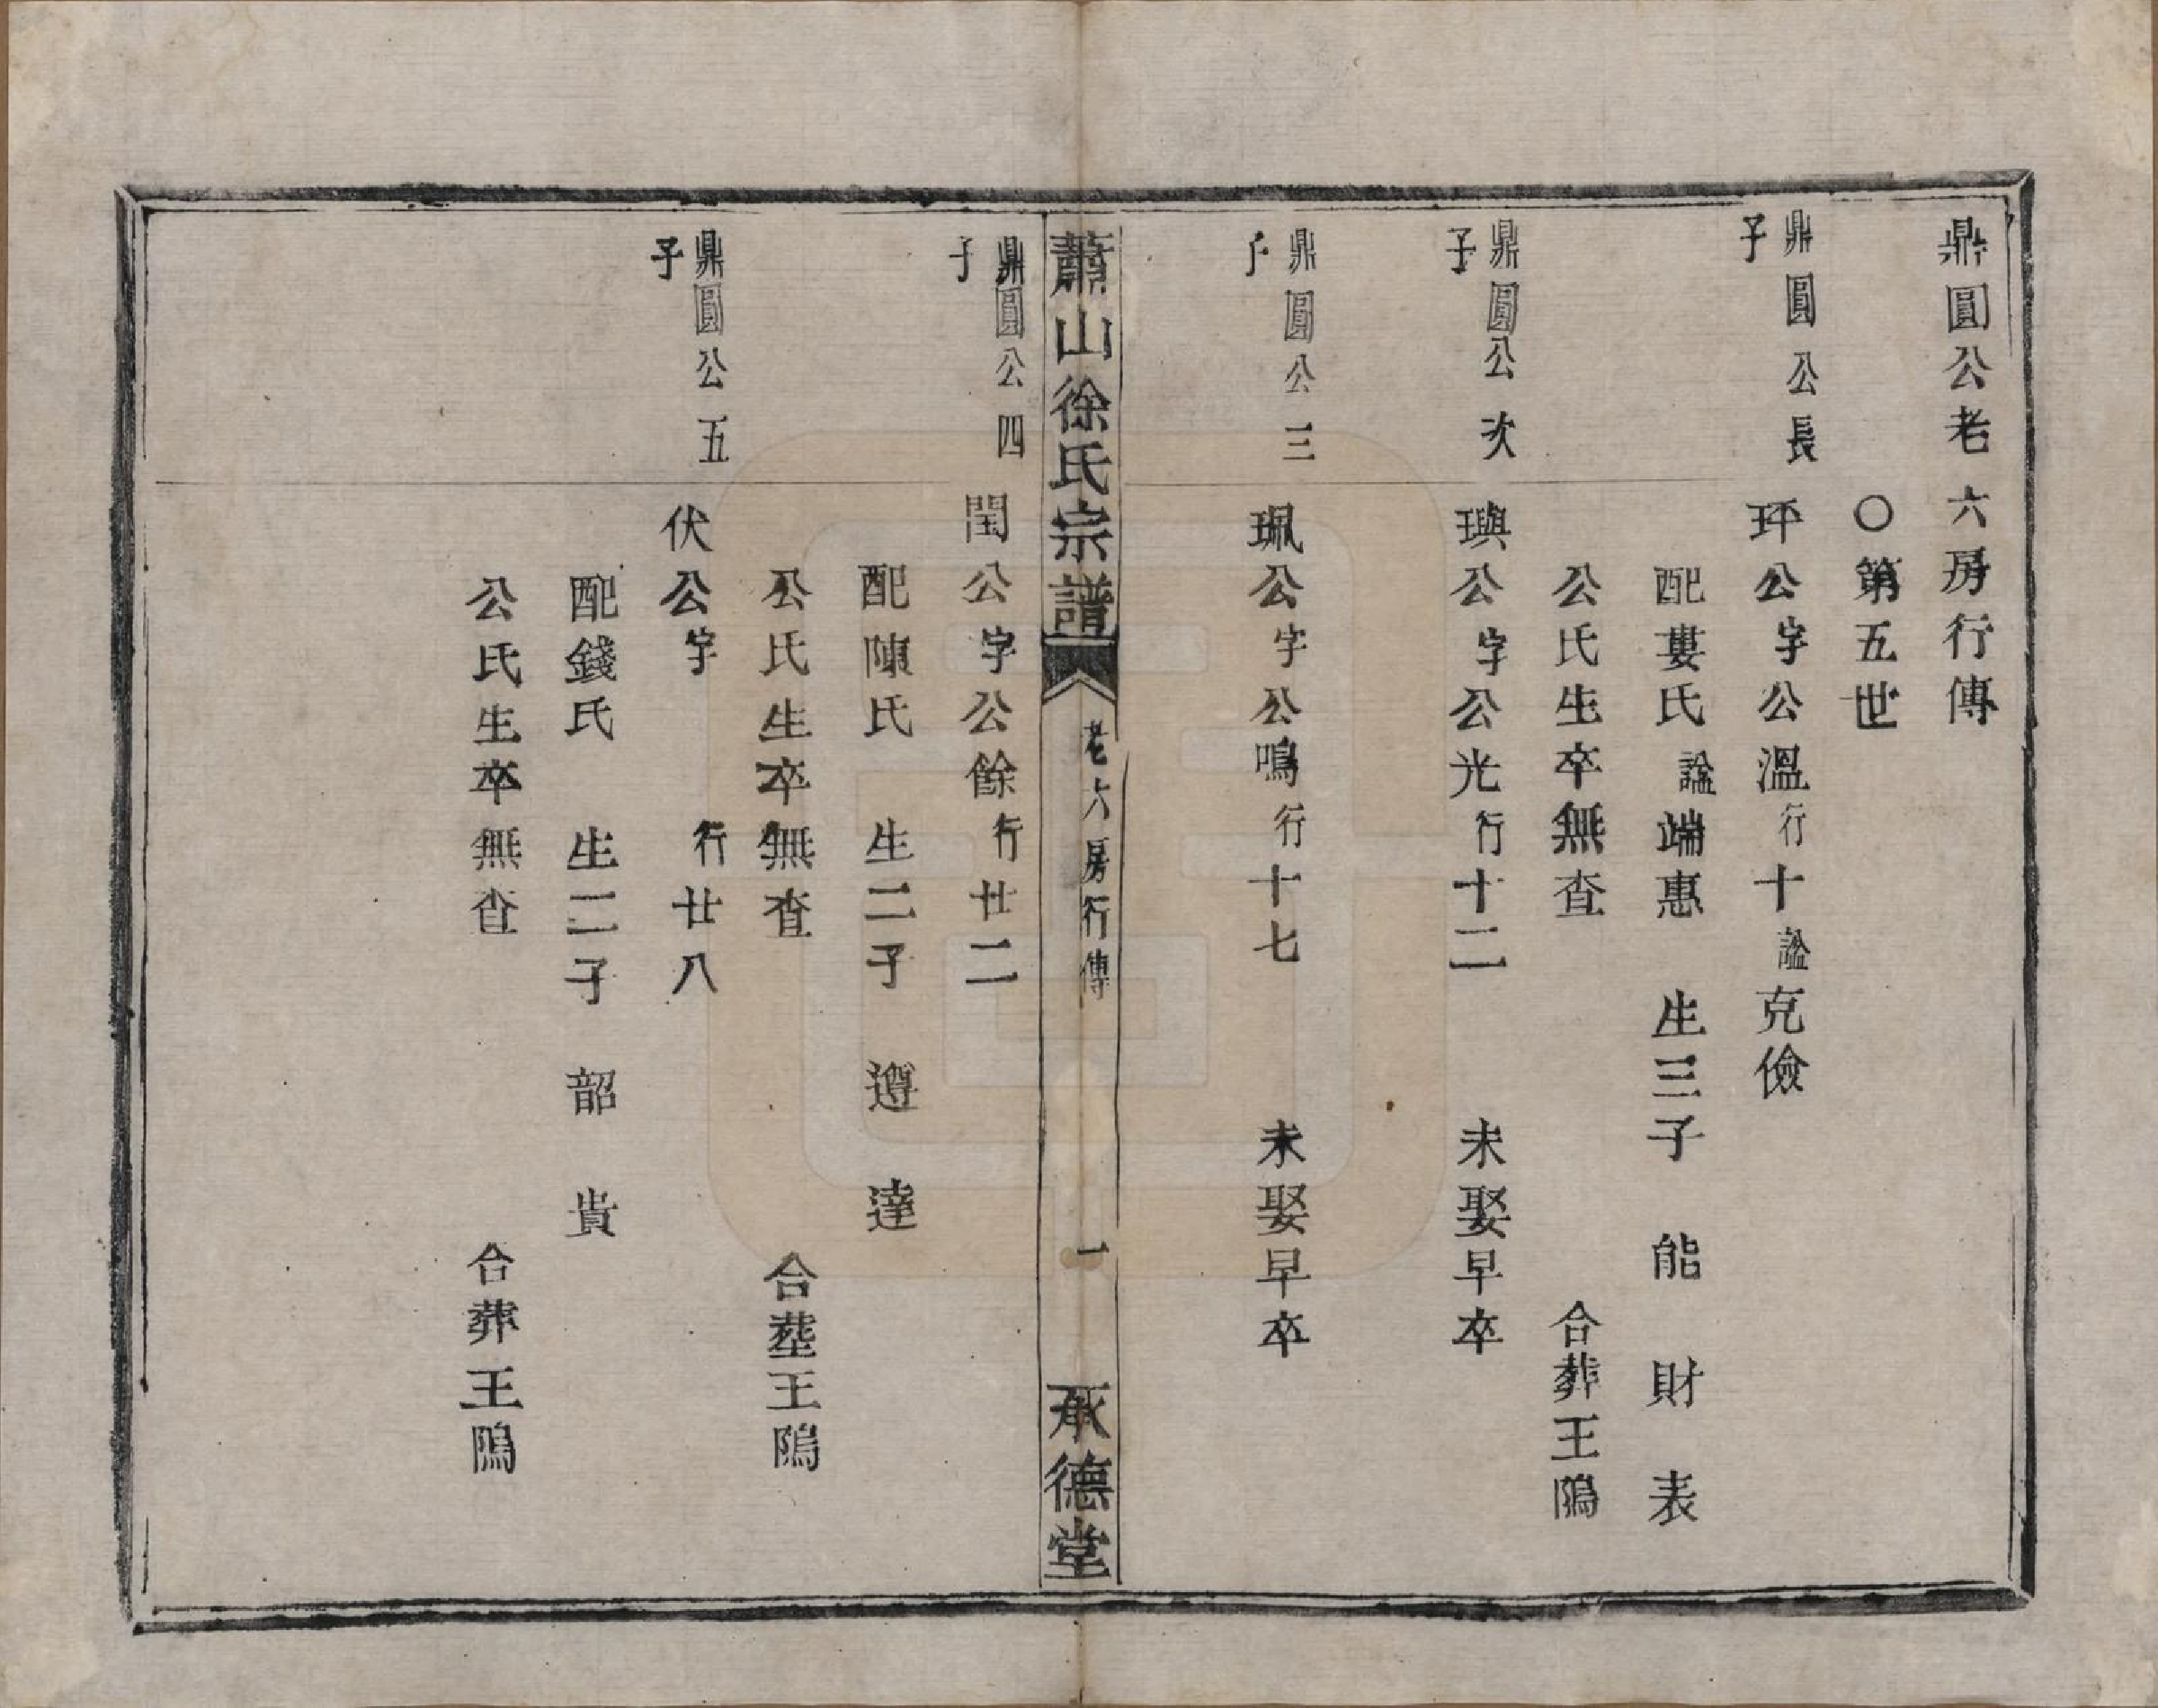 鼎圓公老六房行傳
○第五世
鼎圓公長子
玶公字公溫行十謚克儉
配婁氏謚端惠　生三子　能　財　表
公氏生卒無查　合葬王隝
鼎圓公次子
璵公字公光行十二　未娶早卒
鼎圓公三子
珮公字公鳴行十七　未娶早卒
蕭山徐氏宗譜　老六房行傳　一　承德堂
鼎圓公四子
閏公字公餘行廿二
配陳氏　生二子　遵　達
公氏生卒無查　合塟王隝
鼎圓公五子
伏公字　行廿八
配錢氏　生二子　韶　貴
公氏生卒無查　合葬王隝